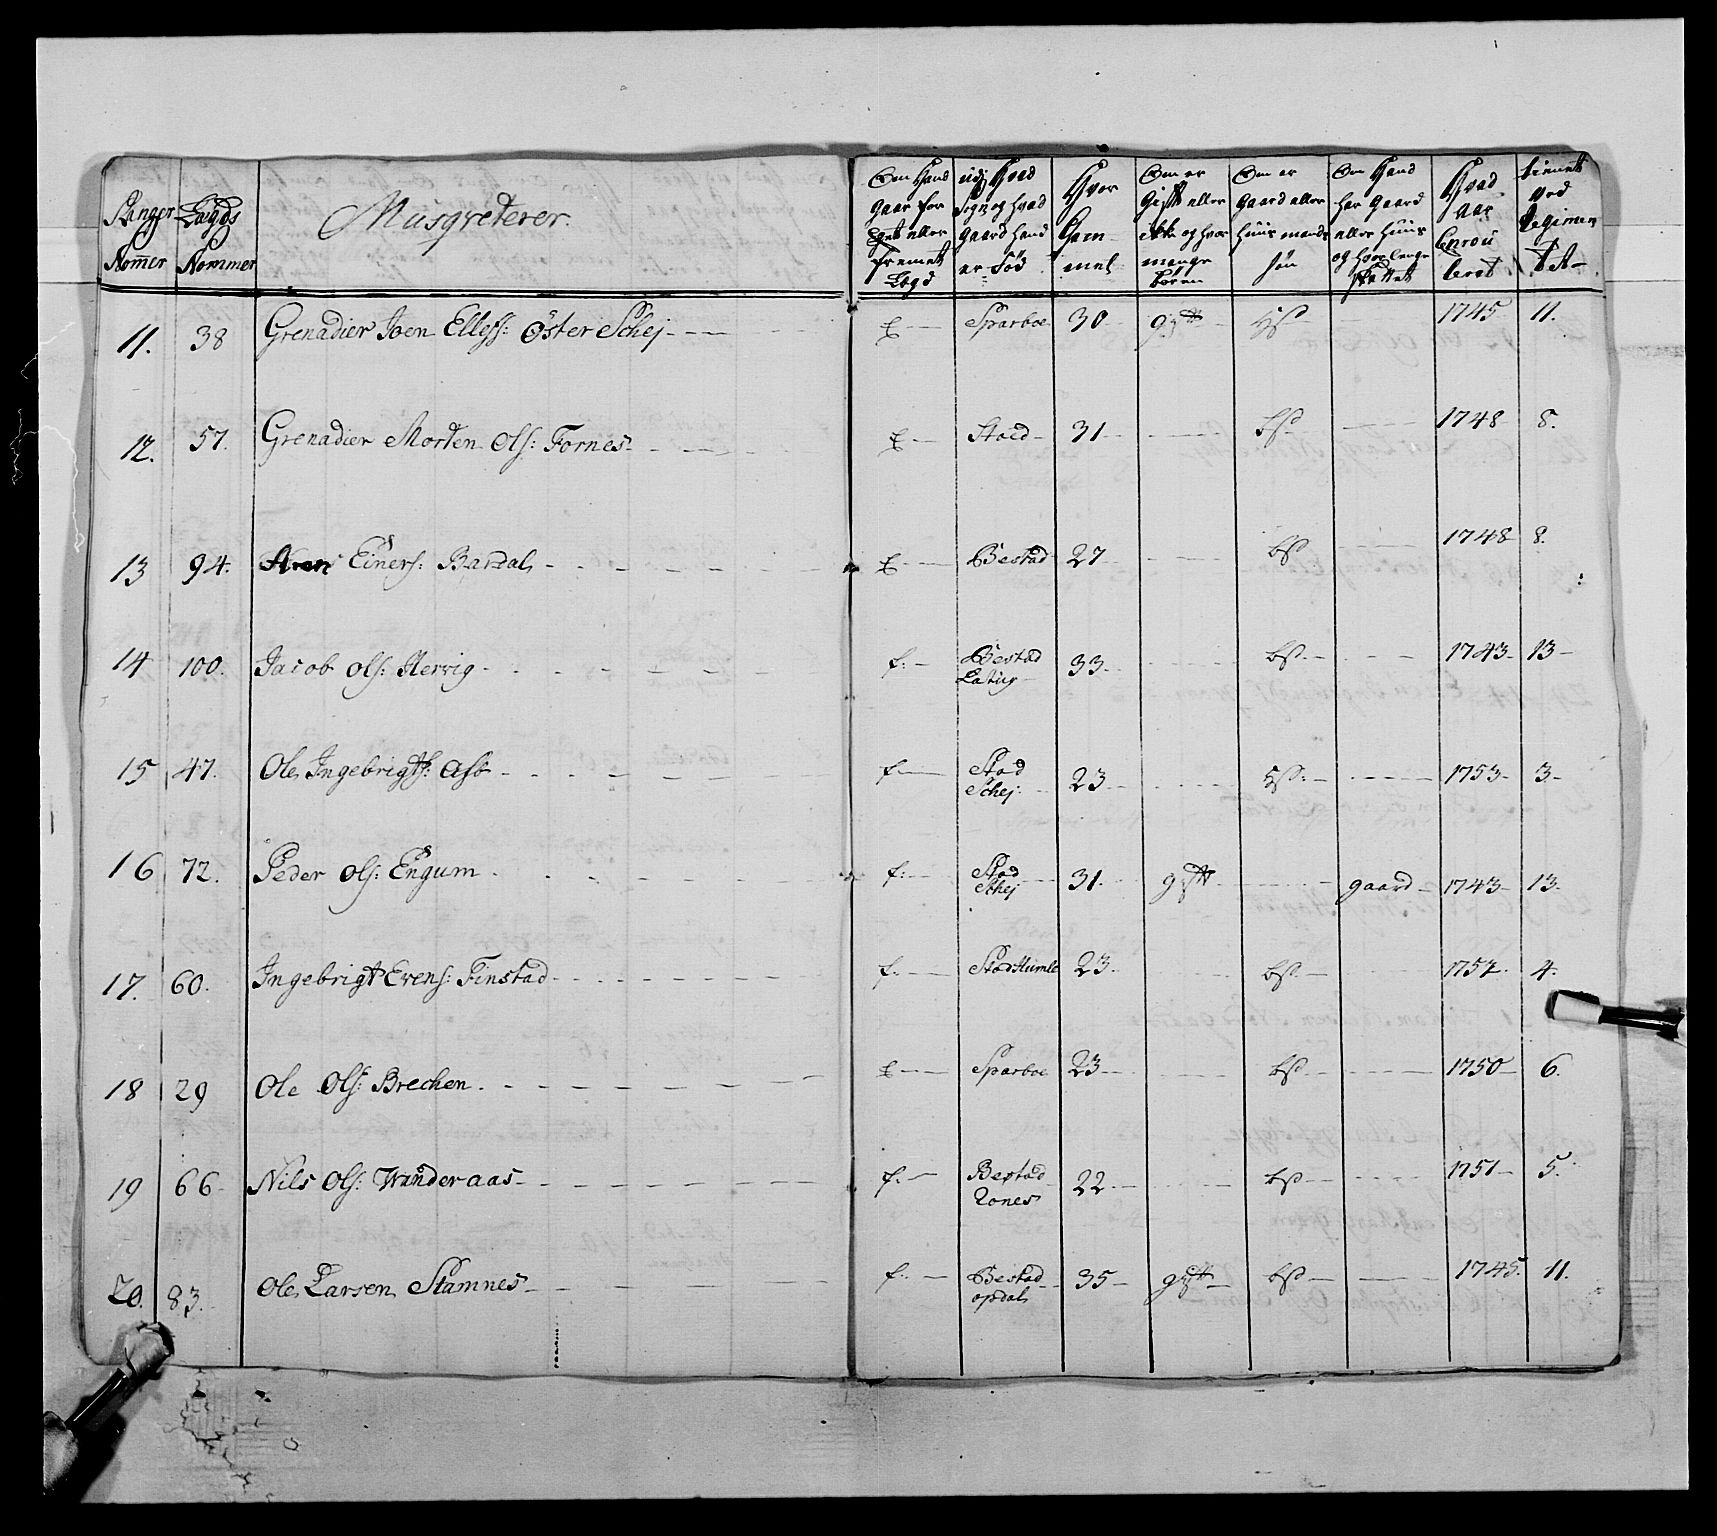 Nomer
Laigds
Nommer
Musqveterer.
Om Hand
gaar for
Eget eller
fremett
Lægd
Hvad
Sogn og hvad
gaard hand
er fød
Hvor
Gam-
mel
Om er
Gift eller
ikke og hvor
mange
børen
Om er
gaard eller
Huus mands
søn
Om Hand
har gaard
eller Huus
og hvor lenge
Hvad
aar
Enrou
leret
tienett
ved
Regimen
tet
11. 38 Grenadier Joen Ellefs: Øster Schej - E - Sparboe 30 gift 1745 11.
12. 57. Grenadier Morten Ols: Fornes - E - Stoed - 31 - bs - 1748 8.
13 94. Einers: Bardal - E - Bestad 27 - bs - 1748 8.
14 100. Jacob Ols: Hervig - f: - Bestad 33 - bs - 1743 - 13 -
15 47. Ole Ingebrigts: Asb - f - Stod
Schej - 23 - Hs: - 1753 - 3 -
16 72. Peder Ols: Engum - f: - Stod
Schej 31. gift - gaard - 1743 - 13 -
17. 60. Ingebrigt Evens: Finstad - f. - Stod Humle 23. bs - 1752. 4.
18 29 Ole Ols: Brechen - E - Sparboe 23 - bs - 1750 - 6.
19 66 Nils Ols: Wanderaas - f. - Bestad
22 - bs - 1751 - 5.
20. 83. Ole Larsen Stamnes - f. - Bestad
opdal 35 - gift - bs - 1745. 11.